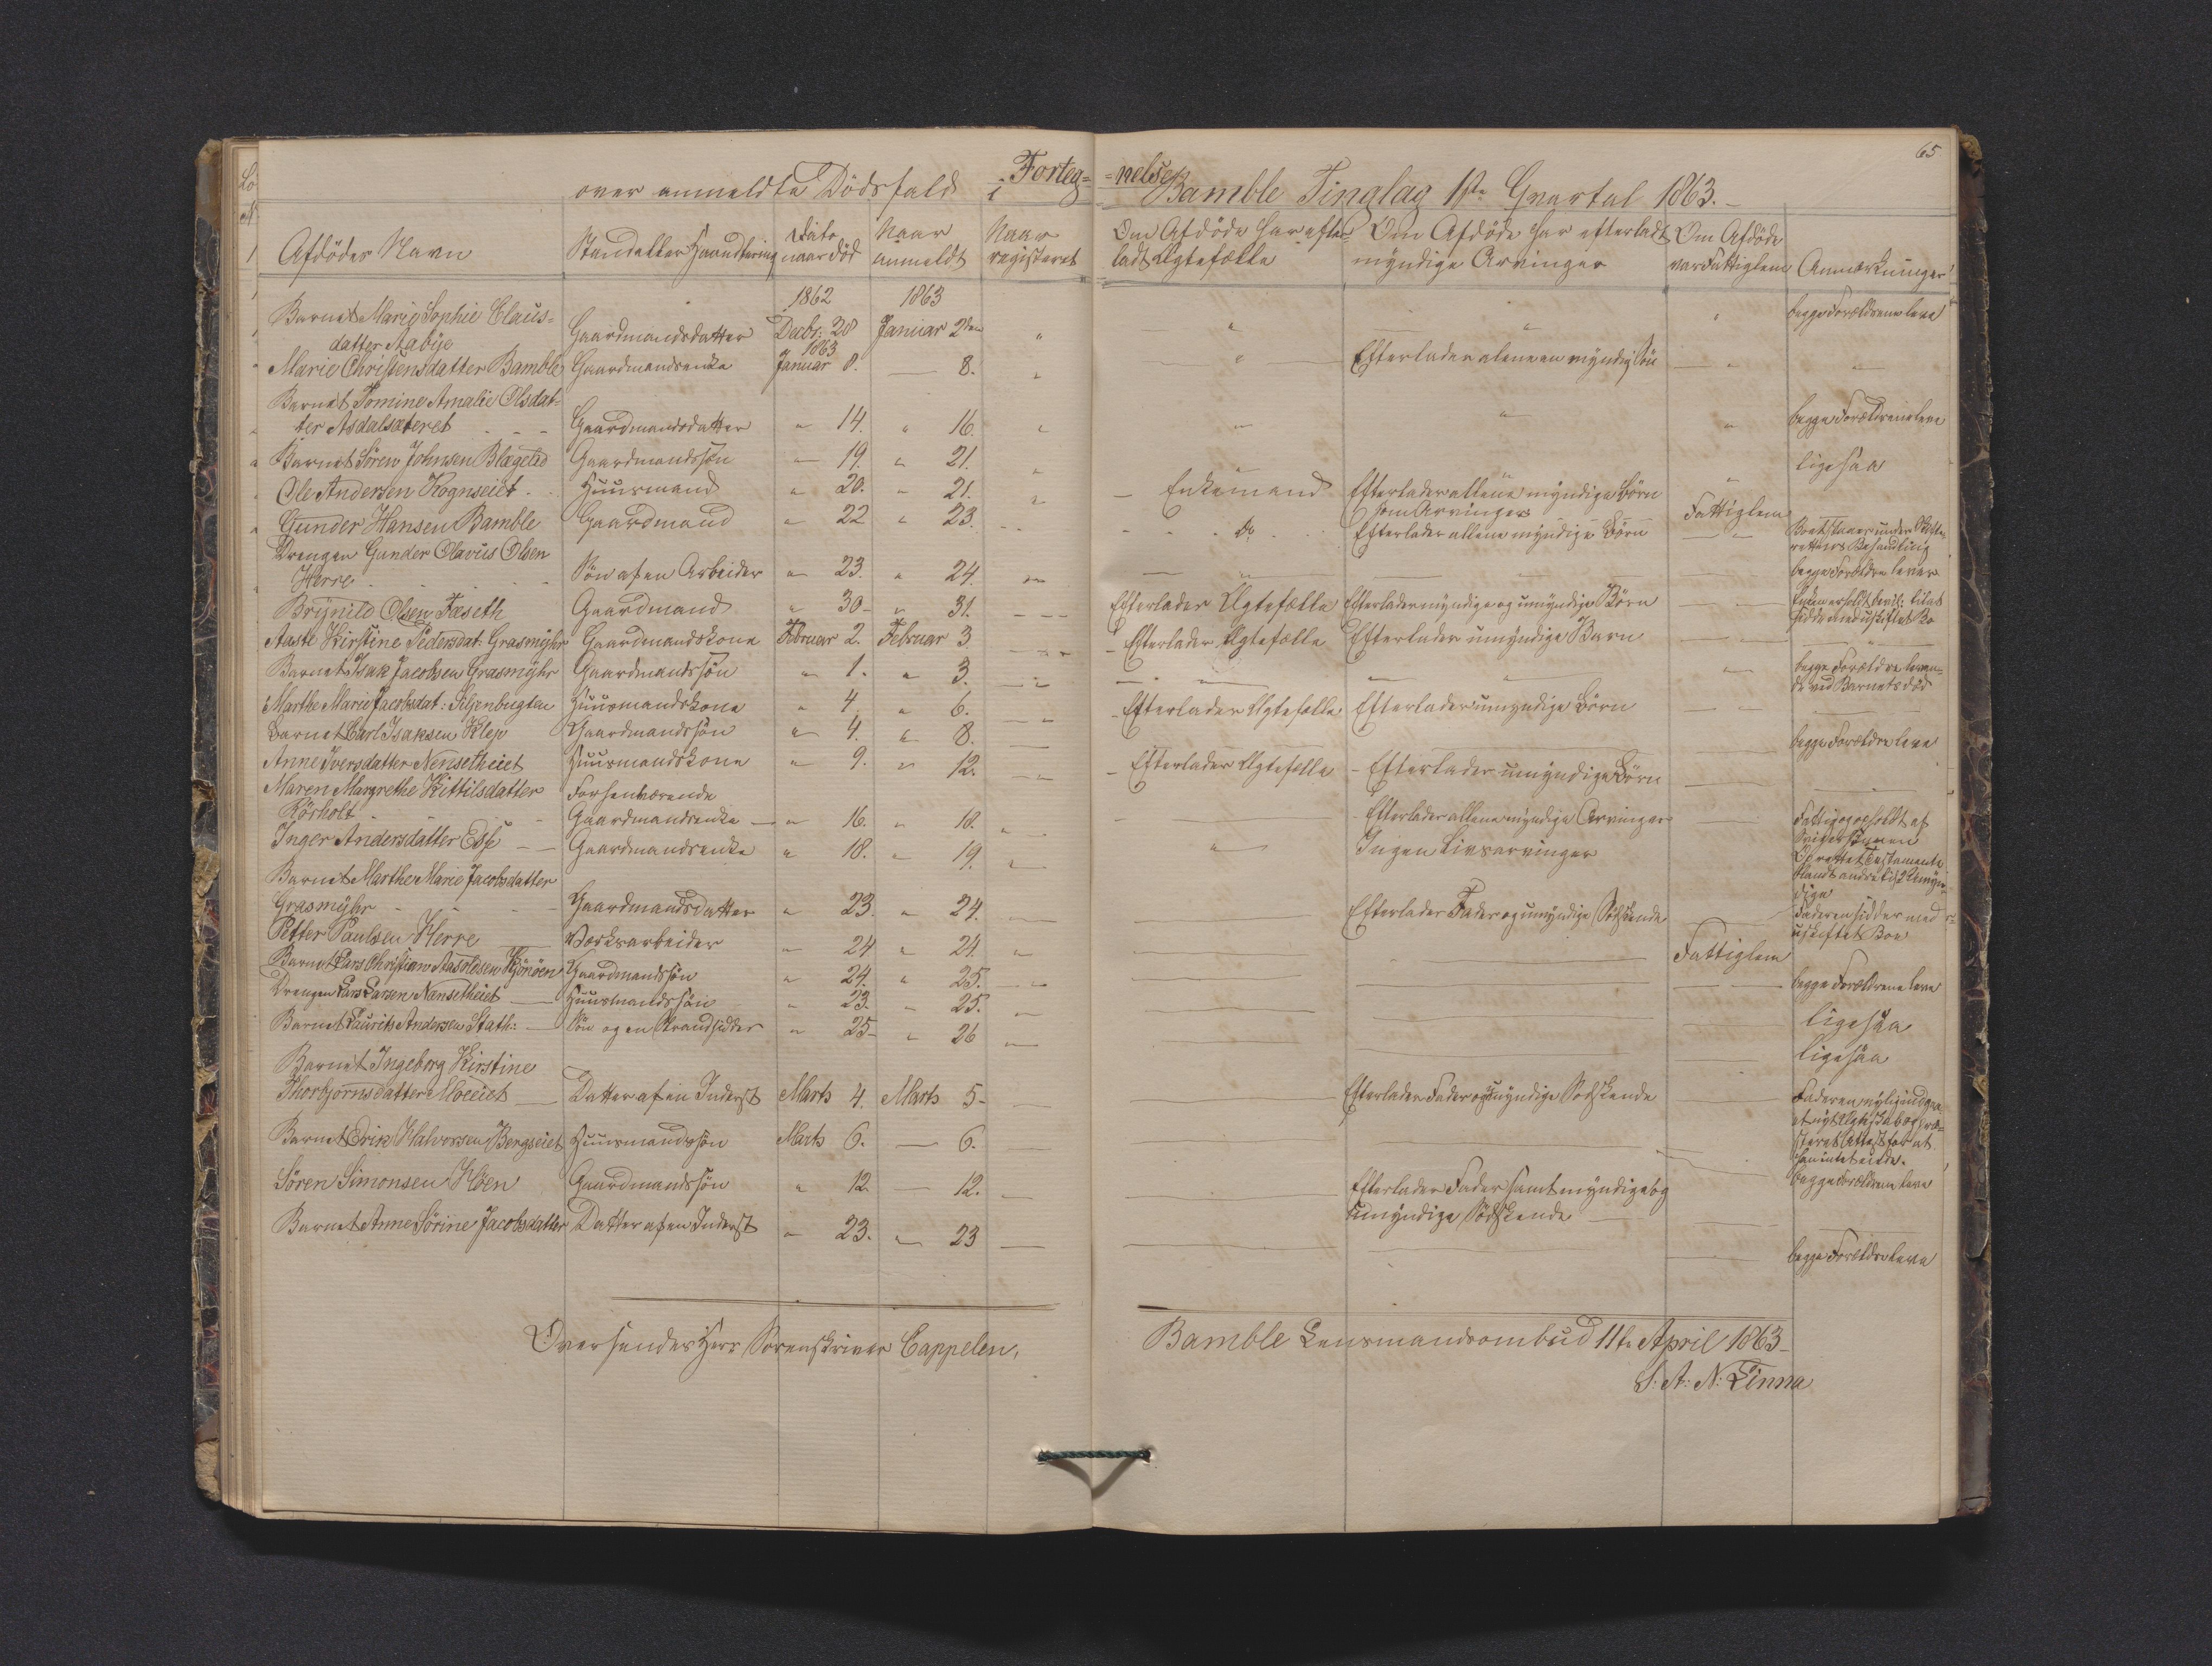 65
Forteg= =nelse
over anmeldte Dödsfald i Bamble Tinglag 1ste Qvartal 1863.-
Afdödes Navn Stand eller Haandtering Dato naar död Naar anmeldt Naar registeret Om Afdöde har efterladt Ægtefælle Om Afdöde har efterladt myndige Arvinger Om Afdöde var Fattiglem Anmærkninger
1862 1863
Barnet Marie Sophie Claus= begge Forældrene leve
datter Aabye Gaardmandsdatter Decbr. 28 Januar 2den " " " "
1863
Marie Christensdatter Bamble Gaardmandsenke Januar 8. — 8. " " Efterlader alene en myndig Sön " "
Barnet Tomine Amalie Olsdat=
ter Asdalsæteret Gaardmandsdatter " 14. " 16. " " " " begge Forældrene leve
Barnet Sören Johnsen Blægstad Gaardmandssön " 19. " 21. " ligesaa
Ole Andersen Kognseiet Huusmand " 20. " 21. " Enkemand Efterlader allene myndige Börn som Arvinger Fattiglem
Gunder Hansen Bamble Gaardmand " 22 " 23. Do Efterlader allene myndige Börn " Boet staaer under Skifterettens Behandling
Drengen Gunder Olavus Olsen
Herre Sön af en Arbeider " 23. " 24. " begge Forældre lever
Brynild Olsen Fæseth Gaardmand " 30- " 31. Efterlader Ægtefælle Efterlader myndige og umyndige Börn Enken erholdt bevil: til at sidde med uskiftet Bo
Aaste Kirstine Pedersdat. Grasmyhr Gaardmandskone Februar 2. Februar 3 Efterlader Ægtefælle Efterlader umyndige Barn
Barnet Isak Jacobsen Grasmyhr Gaardmandssön " 1. " 3. begge Forældre levende ved Barnets död
Marthe Marie Jacobsdat: Siljenbugten Huusmandskone " 4 " 6. Efterlader Ægtefælle Efterlader umyndige Börn
Barnet Carl Isaksen Klep Gaardmandssön " 4. " 8. begge Forældre leve
Anne Iversdatter Nensetheiet Huusmandskone " 9. " 12. Efterlader Ægtefælle Efterlader umyndige Börn
Maren Margrethe Kittilsdatter Forhenværende
Rörholt Gaardmandsenke " 16. " 18. Efterlader allene myndige Arvinger
Inger Andersdatter Eeg Gaardmandsenke " 18. " 19. " Ingen Livsarvinger Oprettet Testamente
Barnet Marthe Marie Jacobsdatter
Grasmyhr Gaardmandsdatter " 23. " 24. Efterlader Fader og umyndige Södskende Faderen sidder med uskiftet Boe
Petter Paulsen Herre Værksarbeider " 24 " 24. Fattiglem
Barnet Lars Christian Aasoldsen Kjönöen Gaardmandssön " 24. " 25. begge Forældrene leve
Drengen Lars Larsen Nensetheiet Huusmandssön " 23. " 25. ligesaa
Barnet Laurits Andersen Stath: Sön og en Strandsidder " 25- " 26 ligesaa
Barnet Ingeborg Kirstine
Thorbjörnsdatter Moeeiet Datter af en Inderst Marts 4. Marts 5- Efterlader Fader og umyndige Södskende
Barnet Edrik Halvorsen Bergseiet Huusmandssön Marts 6. — 6. begge Forældrene leve
Sören Simonsen Hoen Gaardmandssön " 12. — 12. Efterlader Fader samt myndige og umyndige Södskende
Barnet Anne Sörine Jacobsdatter Datter af en Inderst " 23. " 23 begge Forældre leve
Oversendes Herr Sorenskriver Cappelen.
Bamble Lensmandsombud 11te April 1863-
S: A: N: Linna